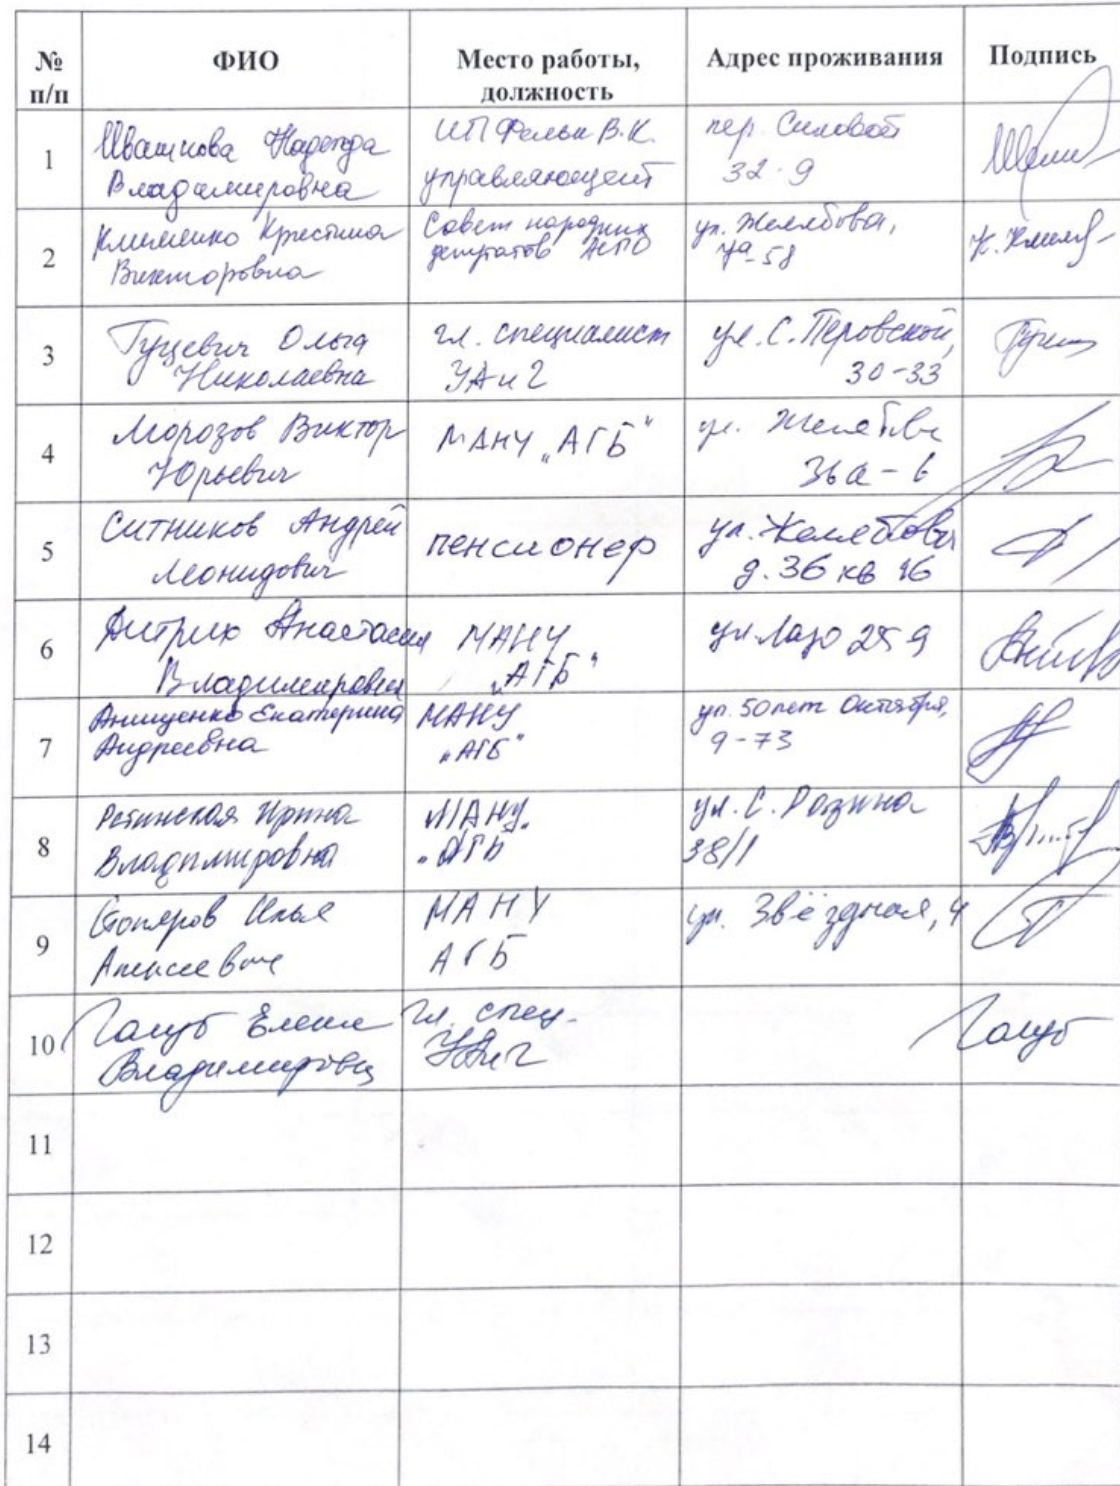 № п/п
ФИО
Место работы, должность
Адрес проживания
Подпись
1
Ивашкова Надежда
Владимировна
ИП Фельк В.К.
управляющей
пер. Силовой
32-9
2
Клименко Кристина
Викторовна
Совет народных
депутатов
ул. Желябова,
7а-58
К. Клим
3
Гуцевич Ольга
Николаевна
гл. специалист
УАиГ
ул. С. Перовской,
30-33
4
Морозов Виктор
Юрьевич
МАНУ „АГБ"
ул. Желябова
36а-6
5
Ситников Андрей
Леонидович
пенсионер
ул. Желябова
д. 36 кв 16
6
Анастасия
Владимировна
МАНУ
„АГБ"
ул Лазо
7
Анищенко Екатерина
Андреевна
МАНУ
„АГБ"
ул. 50 лет Октября,
9-73
8
Ретинская Ирина
Владимировна
МАНУ
„АГБ"
ул. С. Разина
38/1
9
Столяров Илья
Алексеевич
МАНУ
АГБ
ул. Звёздная, 4
10
Голуб Елена
Владимировна
гл. спец.
УАиГ
Голуб
11
12
13
14